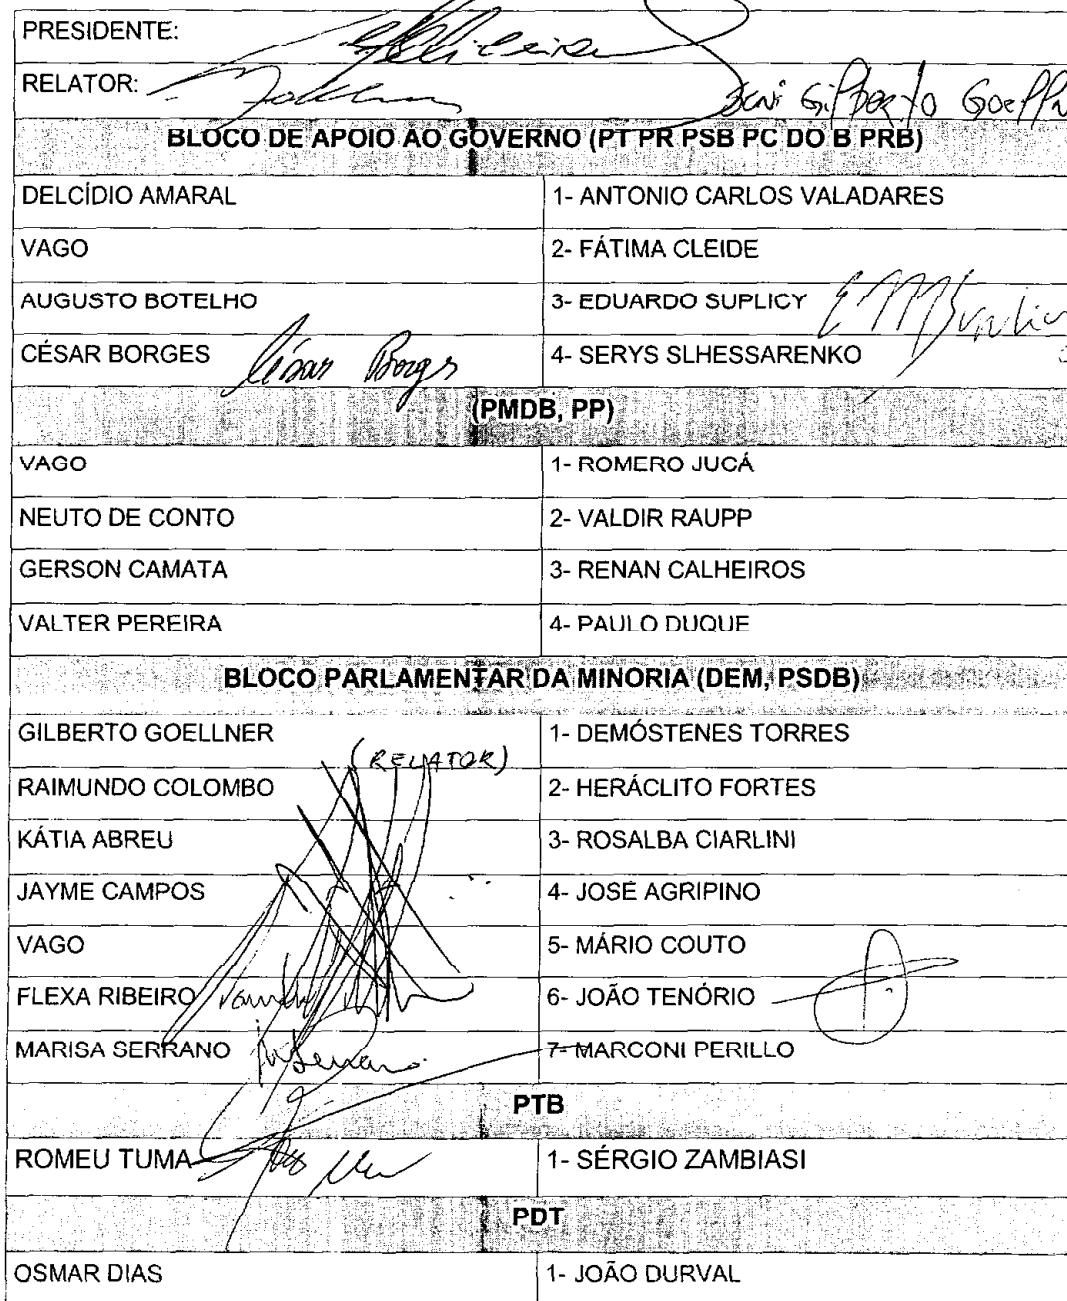 PRESIDENTE:
RELATOR: Gilberto Goellner
BLOCO DE APOIO AO GOVERNO (PT PR PSB PC DO B PRB)
DELCÍDIO AMARAL 1- ANTONIO CARLOS VALADARES
VAGO 2- FÁTIMA CLEIDE
AUGUSTO BOTELHO 3- EDUARDO SUPLICY
CÉSAR BORGES César Borges 4- SERYS SLHESSARENKO
(PMDB, PP)
VAGO 1- ROMERO JUCÁ
NEUTO DE CONTO 2- VALDIR RAUPP
GERSON CAMATA 3- RENAN CALHEIROS
VALTER PEREIRA 4- PAULO DUQUE
BLOCO PARLAMENTAR DA MINORIA (DEM, PSDB)
GILBERTO GOELLNER 1- DEMÓSTENES TORRES
(RELATOR)
RAIMUNDO COLOMBO 2- HERÁCLITO FORTES
KÁTIA ABREU 3- ROSALBA CIARLINI
JAYME CAMPOS 4- JOSÉ AGRIPINO
VAGO 5- MÁRIO COUTO
FLEXA RIBEIRO 6- JOÃO TENÓRIO
MARISA SERRANO 7- MARCONI PERILLO
PTB
ROMEU TUMA 1- SÉRGIO ZAMBIASI
PDT
OSMAR DIAS 1- JOÃO DURVAL